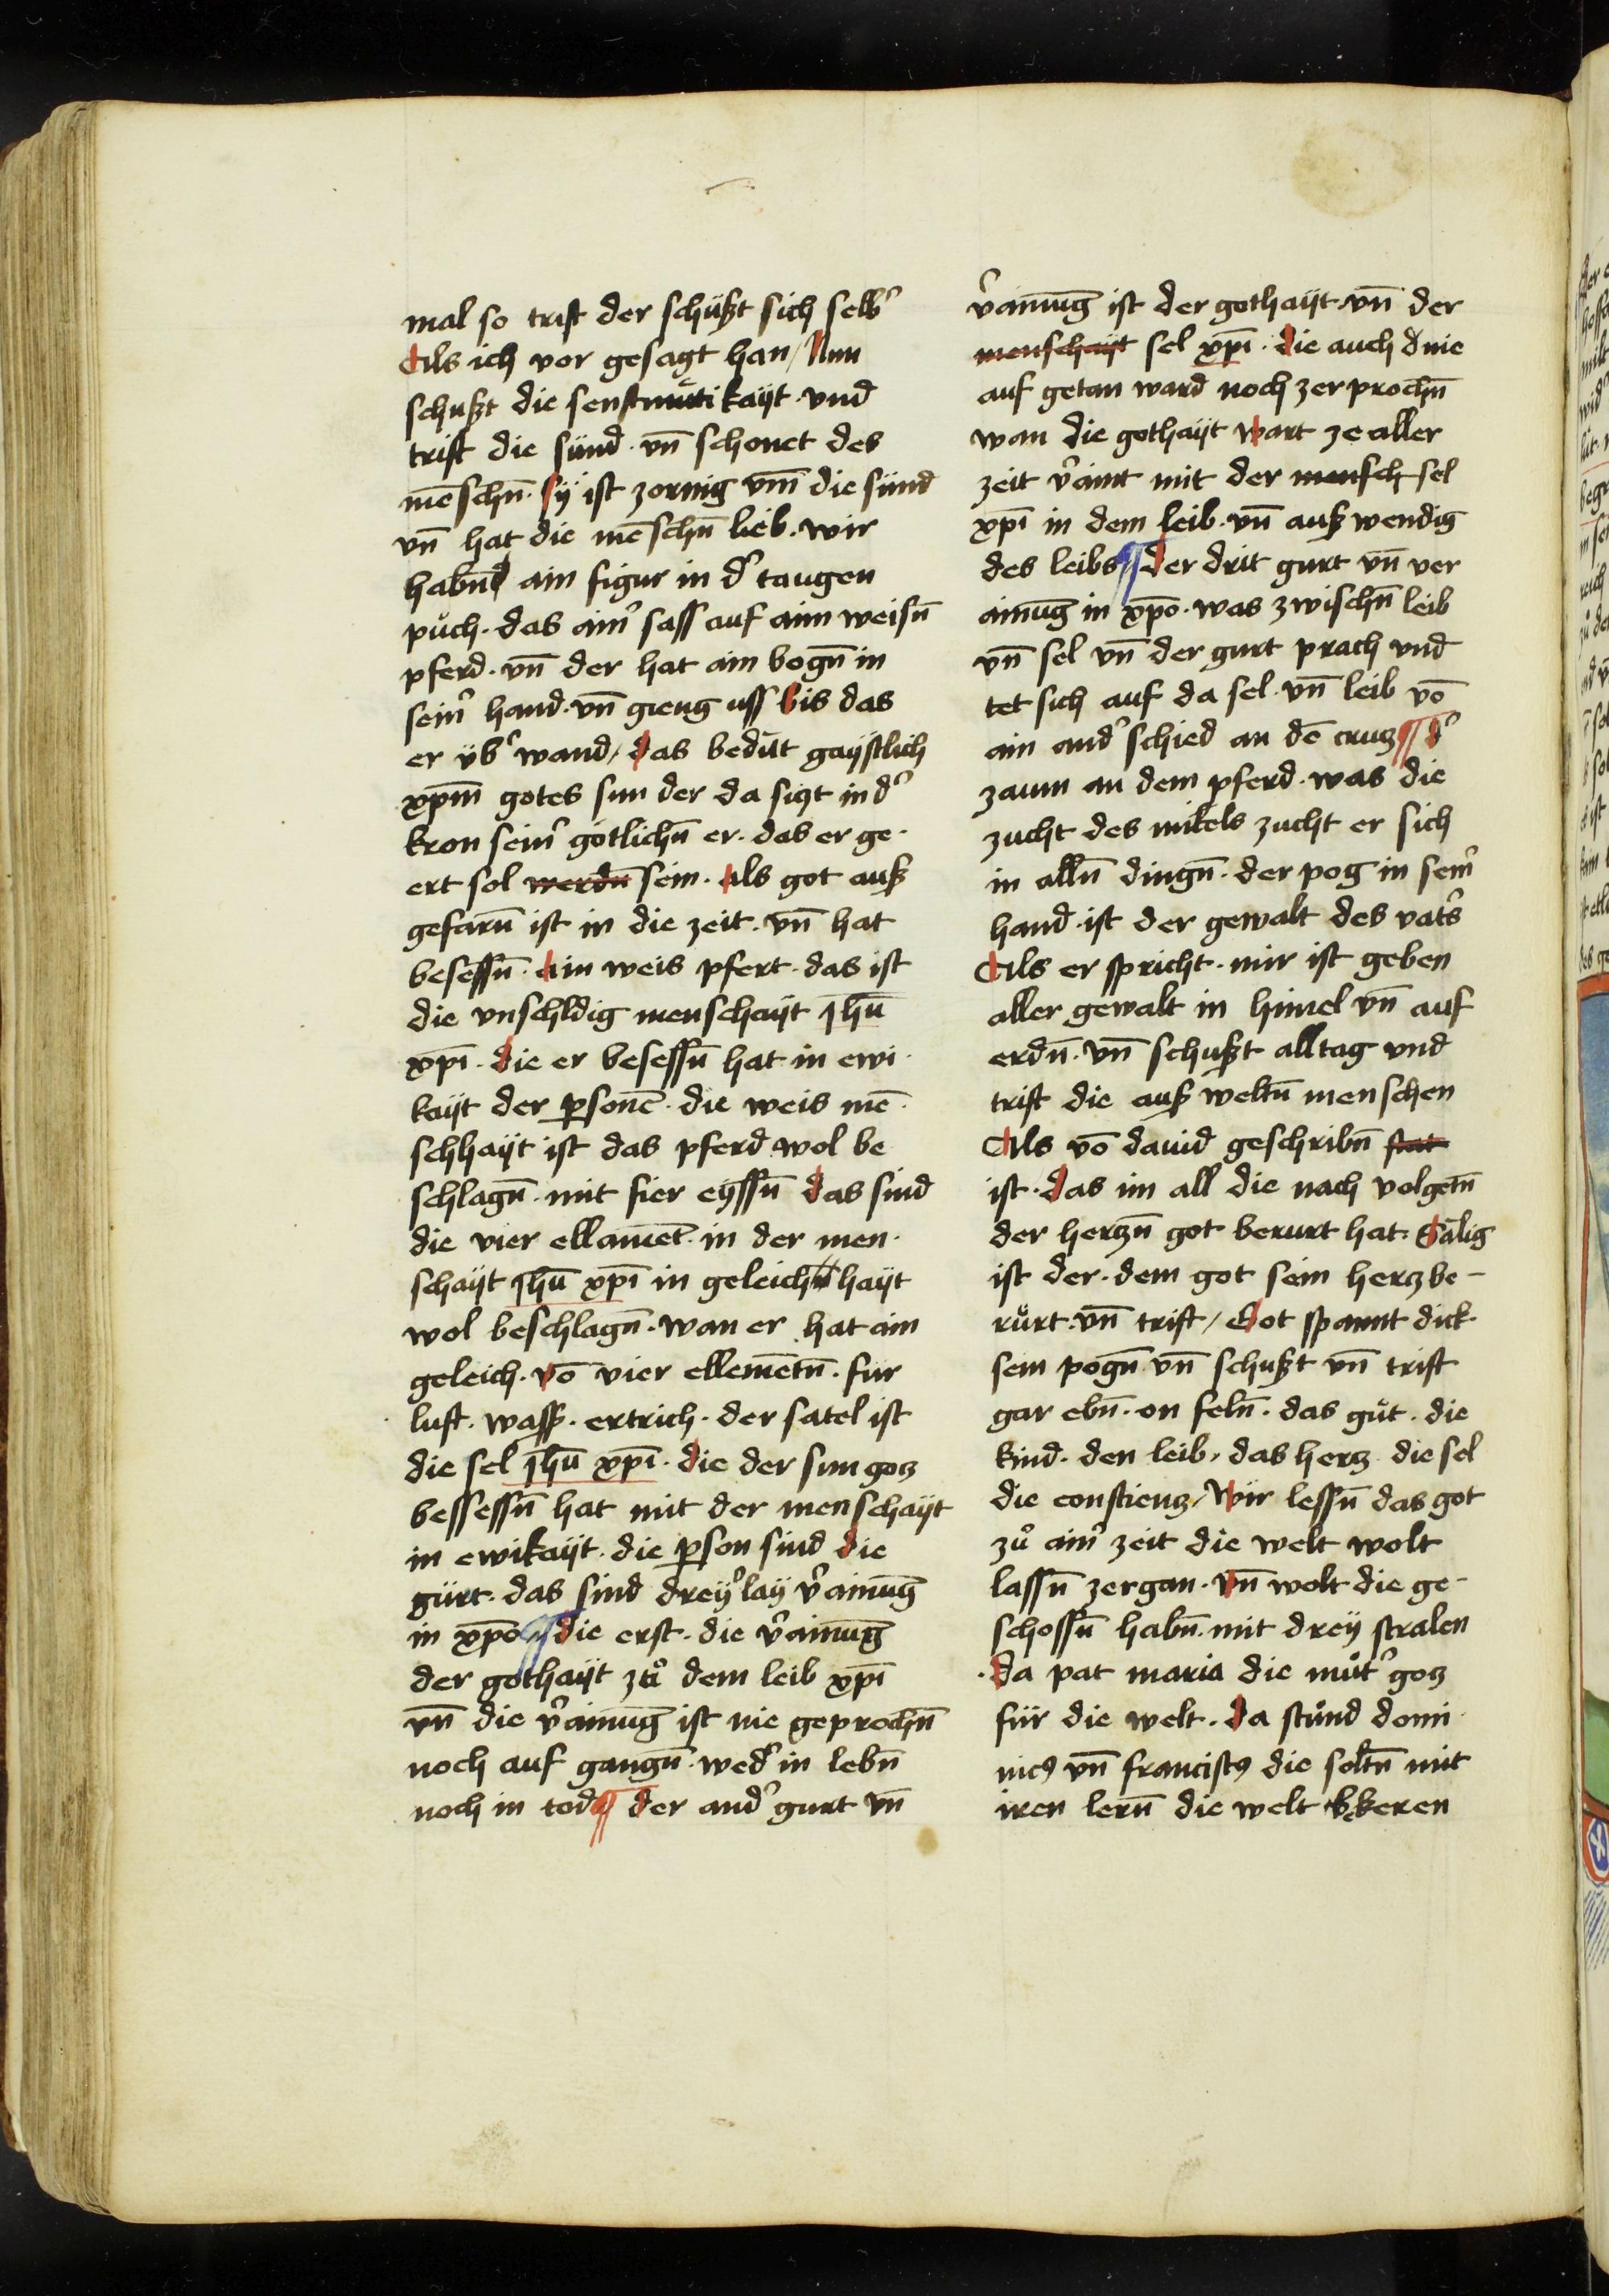 mal so trift der schüßt sich selbꝰ
Als ich vor gesagt han / Nun
schußt die senftmuͤtikaÿt · vnd
trift die sünd · vn̄ schonet des
mēschn̄ · sÿ ist zornig vm̄ die sünd
vn̄ hat die mēschn̄ lieb · wir
habn̄ ain figur in dꝰ taugen
puͦch · das ainꝰ sass auf aim weisn̄
pferd · vn̄ der hat ain bogn̄ in
seinꝰ hand · vn̄ gieng uss bis das
er ÿbꝰ wand / das bedüt gaÿstlich
xp̄m gotes sun der da siczt in dꝰ
kron seinꝰ götlichn̄ er · das er ge
ert sol werdn̄ sein · als got auß
gefarn̄ ist in die zeit · vn̄ hat
besessn̄ · ain weis pfert · das ist
die vnschldig menschaÿt jhū
xp̄i · die er besessn̄ hat in ewi
kaÿt der p̱sonē · die weis mē
schhaÿt ist das pferd wol be
schlagn̄ · mit fier eÿssn̄ das sind
die vier ellamēt · in der men
schaÿt jhū xp̄i in geleichn̄ haÿt
wol beschlagn̄ · wan er hat ain
geleich · vō vier ellemētn̄ · für
luft · wasß · ertrich · der satel ist
die sel jhū xp̄i · die der sun gotz
bessessn̄ hat mit der menschaÿt
in ewikaÿt · die p̱son sind die
gürt · das sind dreÿꝰlaÿ vꝰainūg
in xp̄o ¶ die erst · die vꝰainūg
der gothaÿt zuͦ dem leib xp̄i
vn̄ die vꝰainūg ist nie geprochn̄
noch auf gangn̄ · wedꝰ in lebn̄
noch in tod ¶ der andꝰ gurt vn̄
vꝰainūg ist der gothaÿt · vn̄ der
menschaÿt sel xp̄i · die auch nie
auf getan ward noch zerprochn̄
wan die gothaÿt wart ze aller
zeit vꝰaint mit der mensch sel
xp̄i in dem leib · vn̄ auß wendig
des leibs ¶ der drit gurt vn̄ ver
ainūg in xp̄o · was zwischn̄ leib
vn̄ sel vn̄ der gurt prach vnd
tet sich auf da sel · vn̄ leib vō
ain andꝰ schied an dē crutz ¶ dꝰ
zaum an dem pferd · was die
zucht des mitels zucht er sich
in alln̄ dingn̄ · der pog in seinꝰ
hand · ist der gewalt des vatꝰs
Als er spricht · mir ist geben
aller gewalt in himel vn̄ auf
erdn̄ · vn̄ schußt all tag vnd
trift die auß weltn̄ menschen
Als vō dauid geschribn̄ stat
ist · das im all die nach volgetn̄
der hertzn̄ got berurt hat · Sälig
ist der · dem got sein hertz be-
ruͤrt · vn̄ trift / Got spannt dick
sein pogn̄ · vn̄ schußt vn̄ trift
gar ebn̄ · on feln̄ · das guͦt · die
kind · den leib · das hertz · die sel
die constientz / Wir lessn̄ das got
zuͦ ainꝰ zeit die welt wolt
lassn̄ zergan · vn̄ wolt die ge-
schossn̄ habn̄ · mit dreÿ stralen
· da pat maria die muͦtꝰ gotz
für die welt · da stuͦnd domi
nicꝰ vn̄ franciscꝰ die soltn̄ mit
iren lern̄ die welt bekeren